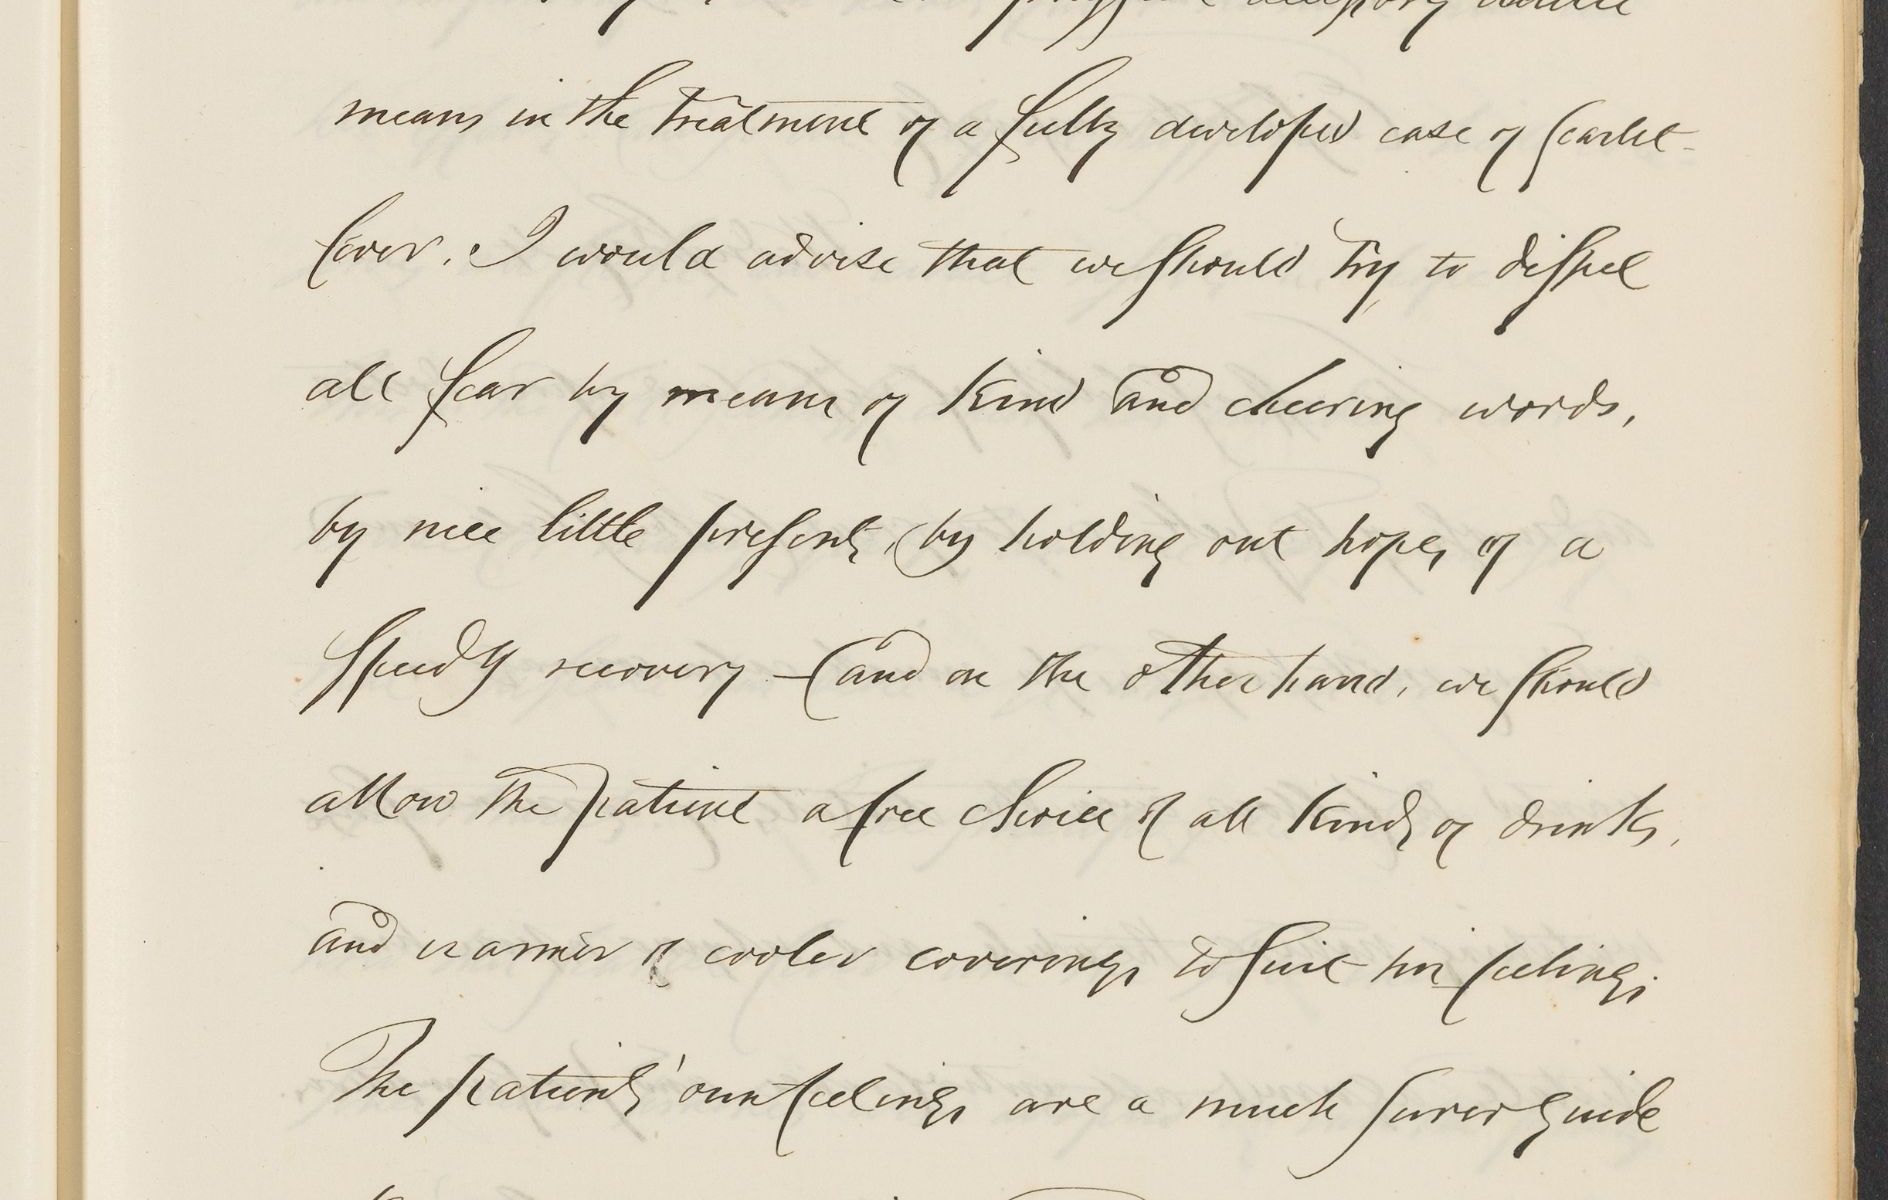 means in the treatment of a fully developed case of scarlet-
fever. I would advise that we should try to dispel
all fear by means of kind and cheering words,
by nice little presents, by holding out hopes of a
speedy recovery – and on the other hand, we should
allow the patient a free choice of all kinds of drinks,
and warmer or cooler coverings to suit his feelings.
The patients' own feelings are a much surer guide